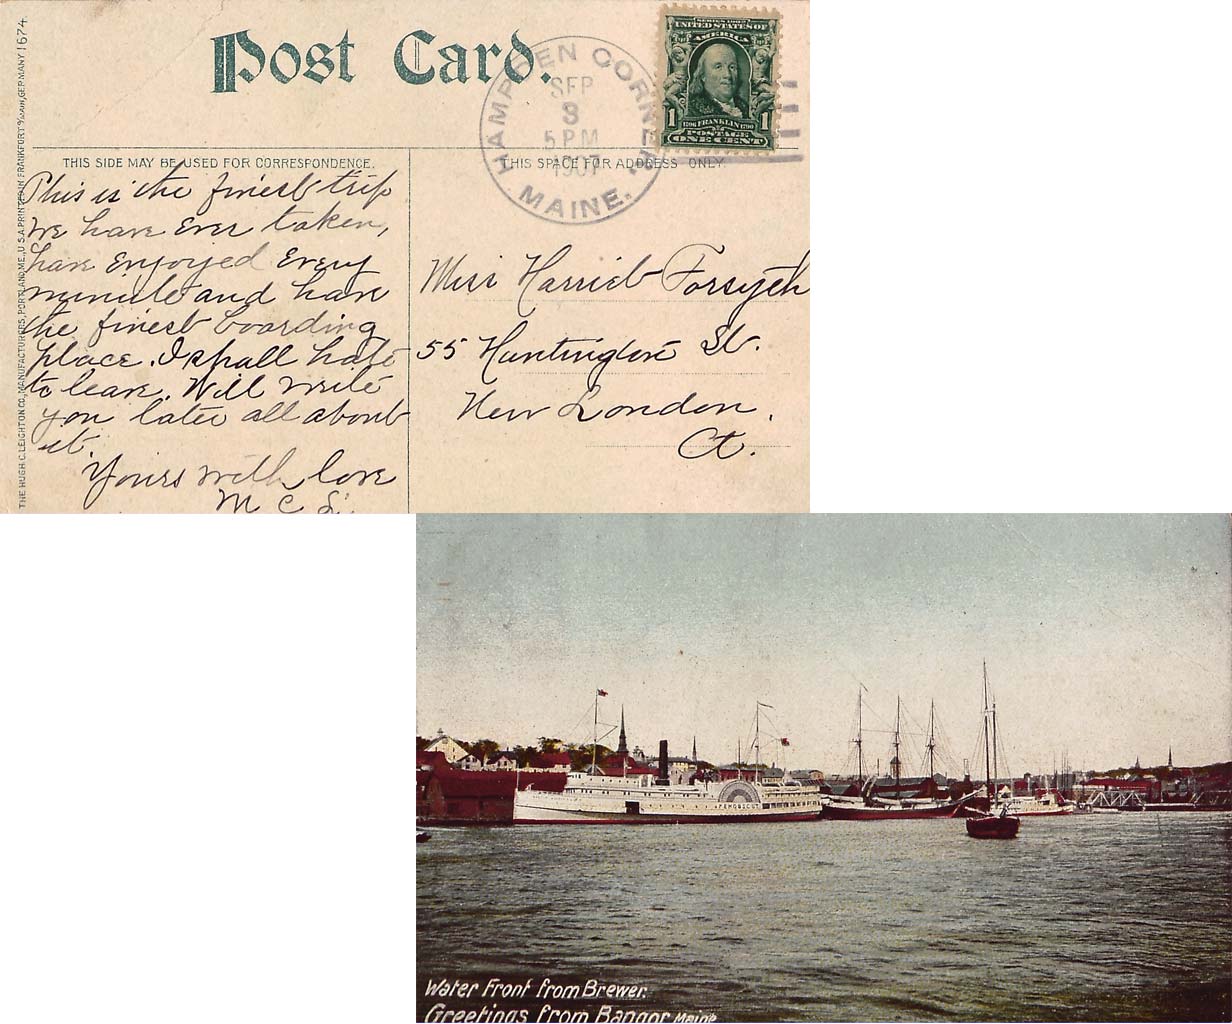 Post Card.
HAMPDEN CORNER,
SEP
3
5 PM
1907
MAINE.
SERIES 1902
UNITED STATES OF
AMERICA
1 1706 FRANKLIN 1790 1
POSTAGE
ONE CENT
THE HUGH C. LEIGHTON CO., MANUFACTURERS, PORTLAND, ME., U.S.A. PRINTED IN FRANKFORT o/MAIN, GERMANY 1674
THIS SIDE MAY BE USED FOR CORRESPONDENCE.
THIS SPACE FOR ADDRESS ONLY.
This is the finest trip
we have ever taken,
have enjoyed every
minute and have
the finest boarding
place. I shall hate
to leave. Will write
you later all about
it.
Yours with love
M C S.
Miss Harriet Forsyth
55 Huntington St.
New London,
Ct.
PENOBSCOT
Water Front from Brewer.
Greetings from Bangor Maine